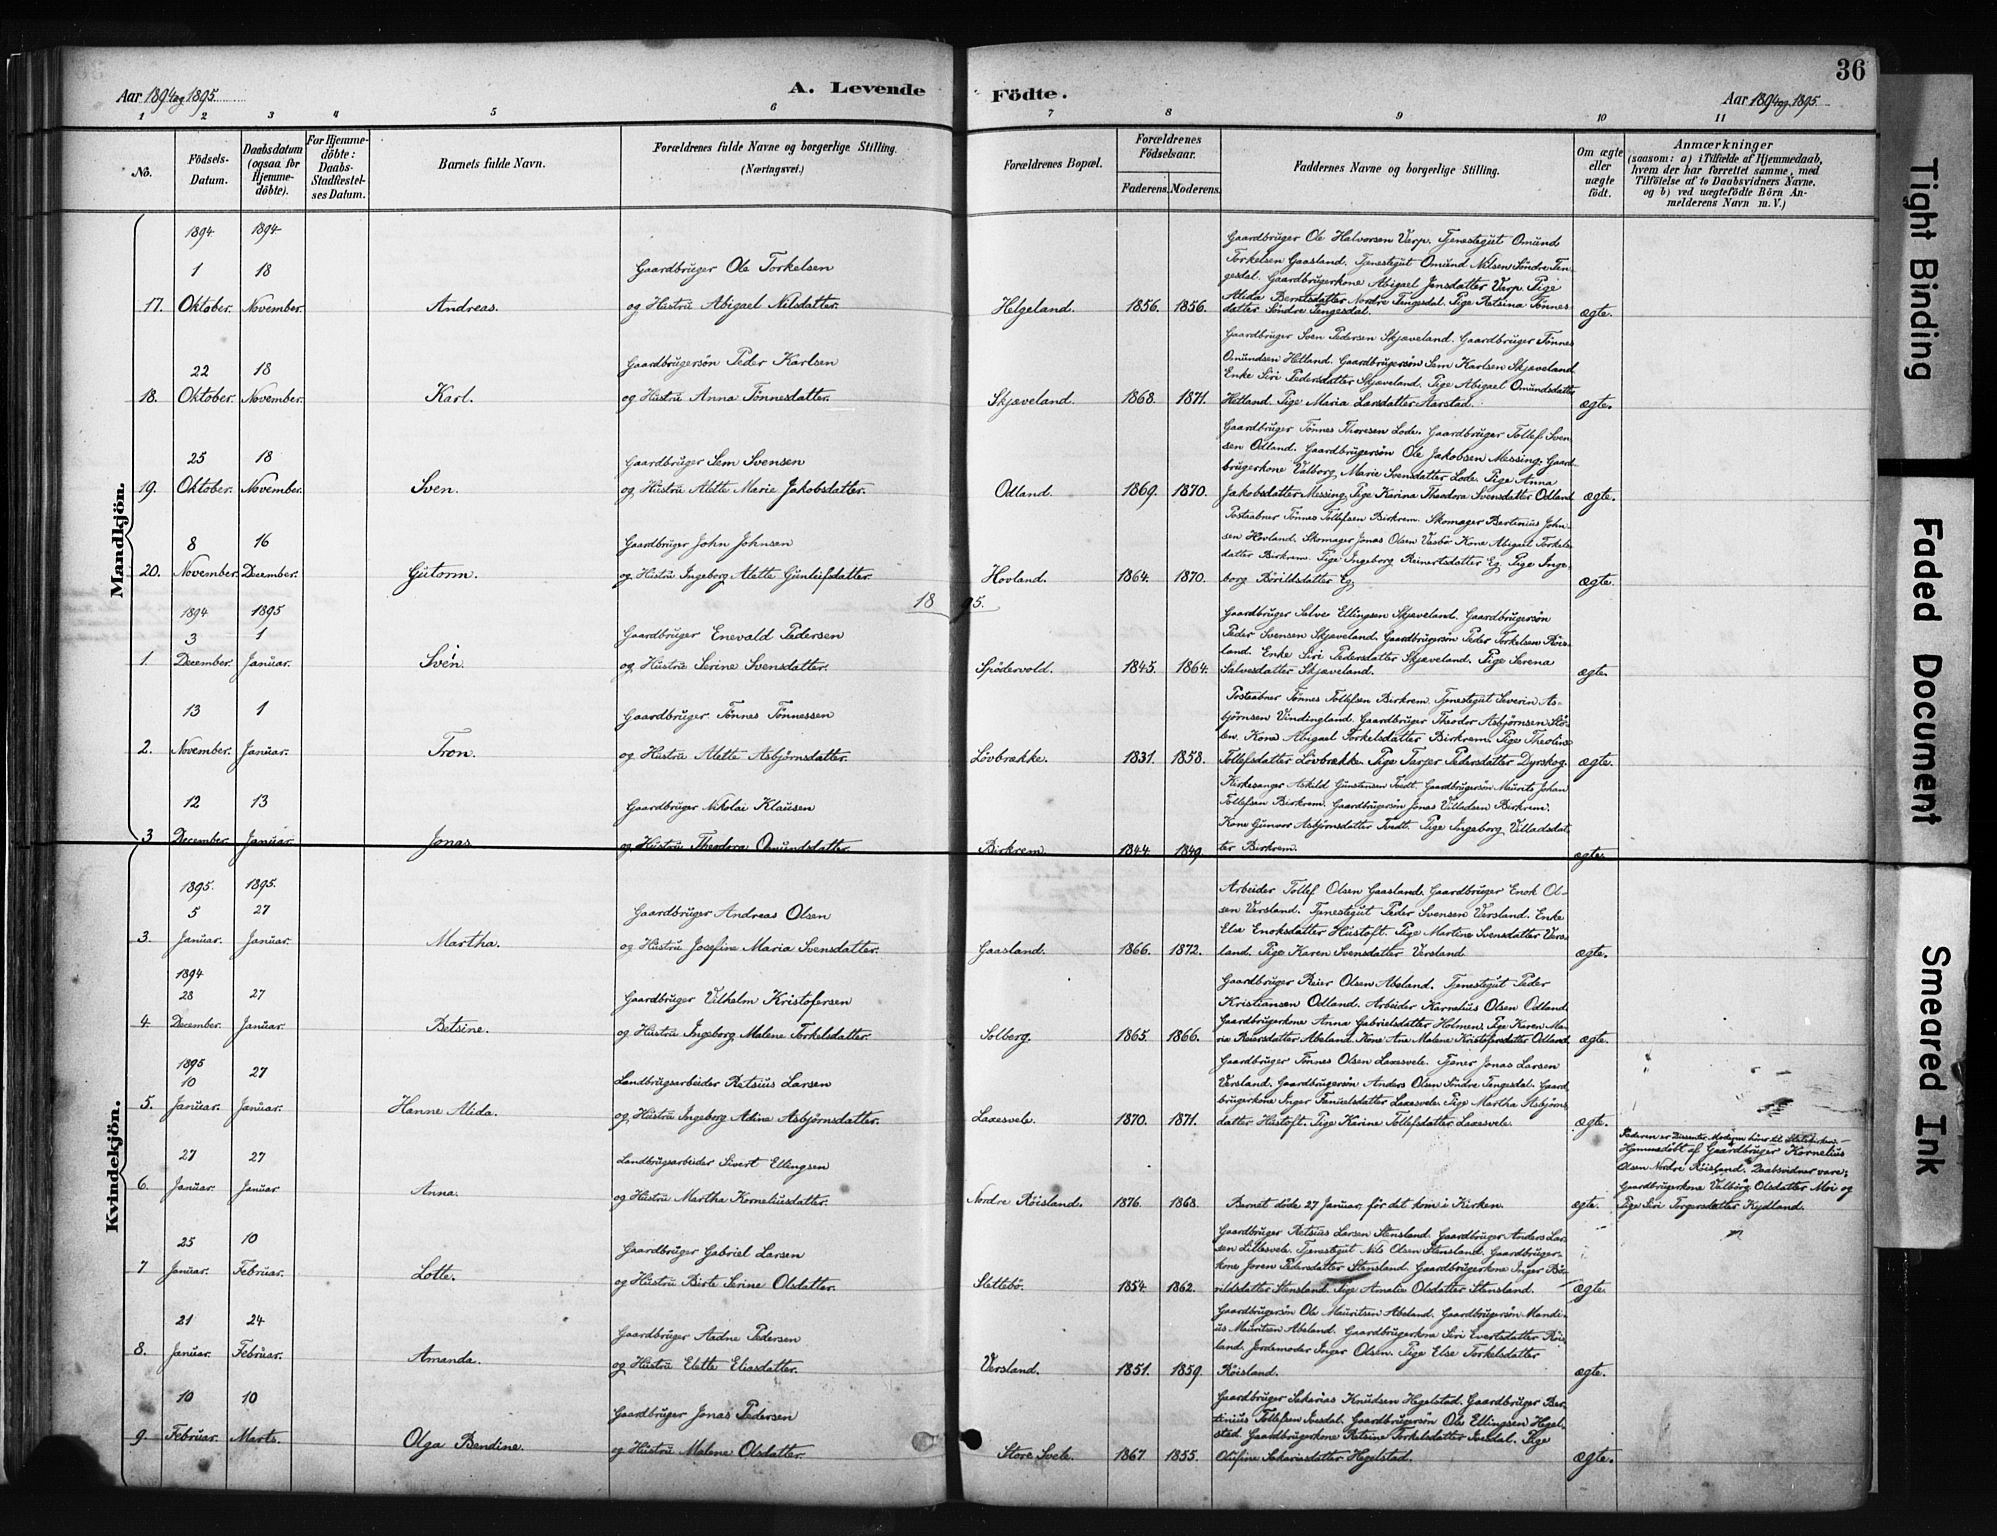 Aar 1894 og 1895
A. Levende
Födte.
Aar 1894 og 1895
36
1 2 3 4 5 6 7 8 9 10 11
No.
Födsels-Datum.
Daabsdatum (ogsaa for Hjemme-döbte).
For Hjemme-döbte: Daabs-Stadfæstel-ses Datum.
Barnets fulde Navn.
Forældrenes fulde Navne og borgerlige Stilling. (Næringsvei.)
Forældrenes Bopæl.
Forældrenes Födselsaar.
Faderens. Moderens.
Faddernes Navne og borgerlige Stilling.
Om ægte eller uægte födt.
Anmærkninger
(saasom: a) i Tilfælde af Hjemmedaab,
hvem der har forrettet samme, med
Tilföielse af to Daabsvidners Navne.
og b) ved uægtefödte Börn An-
melderens Navn m. V.)
Mandkjön.
1894 1894
1 18
17. Oktober. November. Andreas.
Gaardbruger Ole Torkelsen
og Hustru Abigael Nilsdatter.
Helgeland. 1856. 1856.
Gaardbruger Ole Halvorsen Verp. Tjenestegut Omund
Torkelsen Gaasland. Tjenestegut Omund Nilsen Söndre Ten-
gesdal. Gaardbrugerkone Abigael Jonsdatter Verp. Pige
Alida Berntsdatter Nordre Tengesdal. Pige Betsina Tönnes-
datter Söndre Tengesdal.
ægte.
22 18
18. Oktober. November. Karl.
Gaardbrugersön Peder Karlsen
og Hustru Anna Tönnesdatter.
Skjæveland. 1868. 1871.
Gaardbruger Sven Pedersen Skjæveland. Gaardbruger Tönnes
Omundsen Hetland. Gaardbrugersön Sem Karlsen Skjæveland.
Enke Siri Pedersdatter Skjæveland. Pige Abigael Omundsdatter
Hetland. Pige Maria Larsdatter Aarstad.
ægte.
25 18
19. Oktober. November. Sven.
Gaardbruger Sem Svensen
og Hustru Alette Marie Jakobsdatter.
Odland. 1869. 1870.
Gaardbruger Tönnes Thoresen Lode. Gaardbruger Tollef Sven-
sen Odland. Gaardbrugersön Ole Jakobsen Messing. Gaard-
brugerkone Valborg Marie Svensdatter Lode. Pige Anna
Jakobsdatter Messing. Pige Karina Theodora Svensdatter Odland
ægte.
8 16
20. November. December. Gutorm.
Gaardbruger John Johnsen
og Hustru Ingeborg Alette Gunleifsdatter.
Hovland. 1864. 1870.
Postaabner Tönnes Tollefsen Birkrem. Skomager Bertinius John-
sen Hovland. Skomager Jonas Olsen Vasbö. Kone Abigael Torkels-
datter Birkrem. Pige Ingeborg Reinertsdatter Eg. Pige Inge-
borg Börildsdatter Eg.
ægte.
1895.
1894 1895
3 1
1. December. Januar. Svén.
Gaardbruger Enevald Pedersen
og Hustru Serine Svensdatter.
Spödervold. 1845. 1864.
Gaardbruger Salve Ellingsen Skjæveland. Gaardbrugersön
Peder Svensen Skjæveland. Gaardbrugersön Peder Torkelsen Röis-
land. Enke Siri Pedersdatter Skjæveland. Pige Serena
Salvesdatter Skjæveland.
ægte.
13 1
2. November. Januar. Tron.
Gaardbruger Tönnes Tönnessen
og Hustru Alette Asbjörnsdatter.
Lövbrække. 1831. 1858.
Postaabner Tönnes Tollefsen Birkrem. Tjenestegut Severin As-
björnsen Vindingland. Gaardbruger Theodor Asbjörnsen Slö-
len. Kone Abigael Torkelsdatter Birkrem. Pige Theoline
Tollefsdatter Lövbrække. Pige Tarjer Pedersdatter Dyrskog.
ægte.
12 13
3 December. Januar. Jonas
Gaardbruger Nikolai Klausen
og Hustru Theodora Omundsdatter.
Birkrem. 1844. 1849.
Kirkesanger Askild Gunstensen Tvedt. Gaardbrugersön Maurits Johan
Tollefsen Birkrem. Gaardbrugersön Jonas Villadsen Birkrem.
Kone Gunvor Asbjörnsdatter Tvedt. Pige Ingeborg Villadsdat-
ter Birkrem.
ægte.
Kvindekjön.
1895. 1895.
5 27
3. Januar. Januar. Martha.
Gaardbruger Andreas Olsen
og Hustru Josefine Maria Svensdatter.
Gaasland. 1866. 1872.
Arbeider Tollef Olsen Gaasland. Gaardbruger Enok Ol-
sen Versland. Tjenestegut Peder Svensen Versland. Enke
Else Enoksdatter Hustoft. Pige Martine Svensdatter Vers-
land. Pige Karen Svensdatter Versland
ægte.
1894
28 27
4. December. Januar. Betsine.
Gaardbruger Vilhelm Kristofersen
og Hustru Ingeborg Malene Torkelsdatter.
Solberg. 1865. 1866.
Gaardbruger Reier Olsen Abeland. Tjenestegut Peder
Kristiansen Odland. Arbeider Karnelius Olsen Odland.
Gaardbrugerkone Anna Gabrielsdatter Holmen. Pige Karen Ma-
ria Reiersdatter Abeland. Kone Ane Malene Kristofersdatter Odland
ægte.
1895
10 27
5. Januar. Januar. Hanne Alida.
Landbrugsarbeider Retsius Larsen
og Hustru Ingeborg Adine Asbjörnsdatter.
Laxesvele. 1870. 1871.
Gaardbruger Tönnes Olsen Laxesvele. Tjener Jonas Larsen
Versland. Gaardbrugersön Anders Olsen Söndre Tengesdal. Gaard-
brugerkone Inger Tanielsdatter Laxesvele. Pige Martha Asbjörns-
datter Hustoft. Pige Karine Tollefsdatter Laxesvele.
ægte.
27 27
6. Januar. Januar Anna.
Landbrugsarbeider Sivert Ellingsen
og Hustru Martha Korneliusdatter.
Nordre Röisland. 1876. 1868.
Barnet döde 27 Januar, för det kom i Kirken.
ægte.
Faderen er Dissenter. Moderen hörer til Statskirken.
Hjemmedöbt af Gaardbruger Kornelius
Olsen Nordre Röisland. Daabsvidner vare;
Gaardbrugerkone Valborg Olsdatter Moi og
Pige Siri Torgersdatter Kydland.
25 10
7 Januar. Februar. Lotte.
Gaardbruger Gabriel Larsen
og Hustru Birte Serine Olsdatter.
Slettebö. 1854. 1862.
Gaardbruger Retsius Larsen Stensland. Gaardbruger Anders Lar-
sen Lillesvele. Tjenestegut Nils Olsen Stensland. Gaardbruger-
kone Joren Pedersdatter Stensland. Gaardbrugerkone Inger Bö-
rildsdatter Stensland. Pige Amalie Olsdatter Stensland.
ægte.
21 24
8. Januar. Februar. Amanda.
Gaardbruger Aadne Pedersen
og Hustru Elette Eliasdatter.
Versland. 1851. 1859.
Gaardbrugersön Ole Mauritsen Abeland. Gaardbrugersön Mandi-
us Mauritsen Abeland. Gaardbrugerkone Siri Evertsdatter Röis-
land. Jordemoder Inger Olsen. Pige Else Torkelsdatter
Röisland.
ægte.
10 10
9. Februar. Marts. Olga Bendine.
Gaardbruger Jonas Pedersen
og Hustru Malene Olsdatter.
Store Svele. 1867. 1855.
Gaardbruger Sakarias Knudsen Hegelstad. Gaardbruger Ber-
tinius Tollefsen Ivesdal. Gaardbrugersön Ole Ellingsen Hegel-
stad. Gaardbrugerkone Betsine Torkelsdatter Ivesdal. Pige
Olufine Sakariasdatter Hegelstad.
ægte.
Tight Binding
Faded Document
Smeared Ink